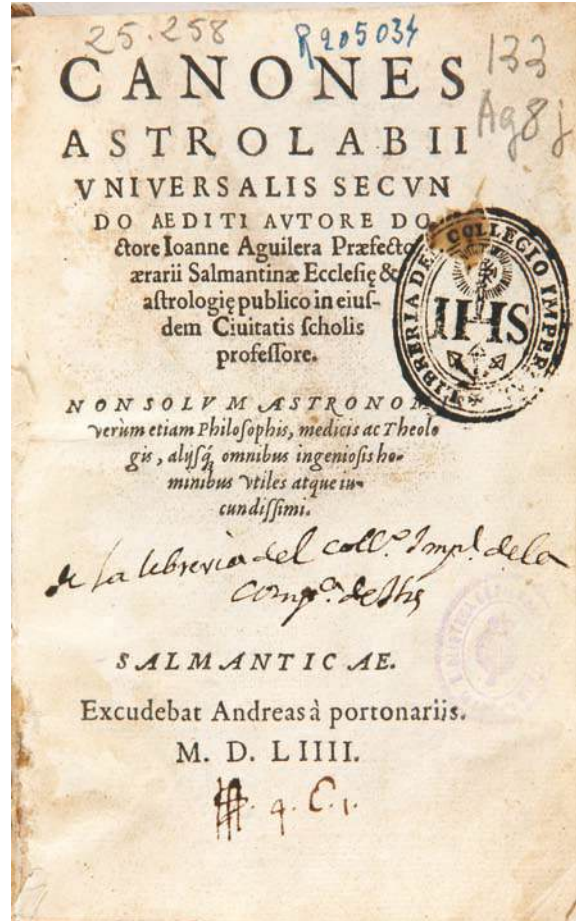 25.258
R205034
133
Ag8j
CANONES
ASTROLABII
VNIVERSALIS SECVN
DO AEDITI AVTORE DO
ctore Ioanne Aguilera Præfecto
ærarii Salmantinæ Ecclesię &
astrologię publico in eius-
dem Ciuitatis scholis
professore.
LIBRERIA DEL COLLEGIO IMPER
IHS
NON SOLVM ASTRONOM
verùm etiam Philosophis, medicis ac Theolo
gis, alijsq́ omnibus ingeniosis ho-
minibus vtiles atque iu-
cundissimi.
de la libreria del coll.º Impl. de la
Comp.ª de Jhs
SALMANTICAE.
Excudebat Andreas à portonariis.
M. D. LIIII.
q. C. 1.